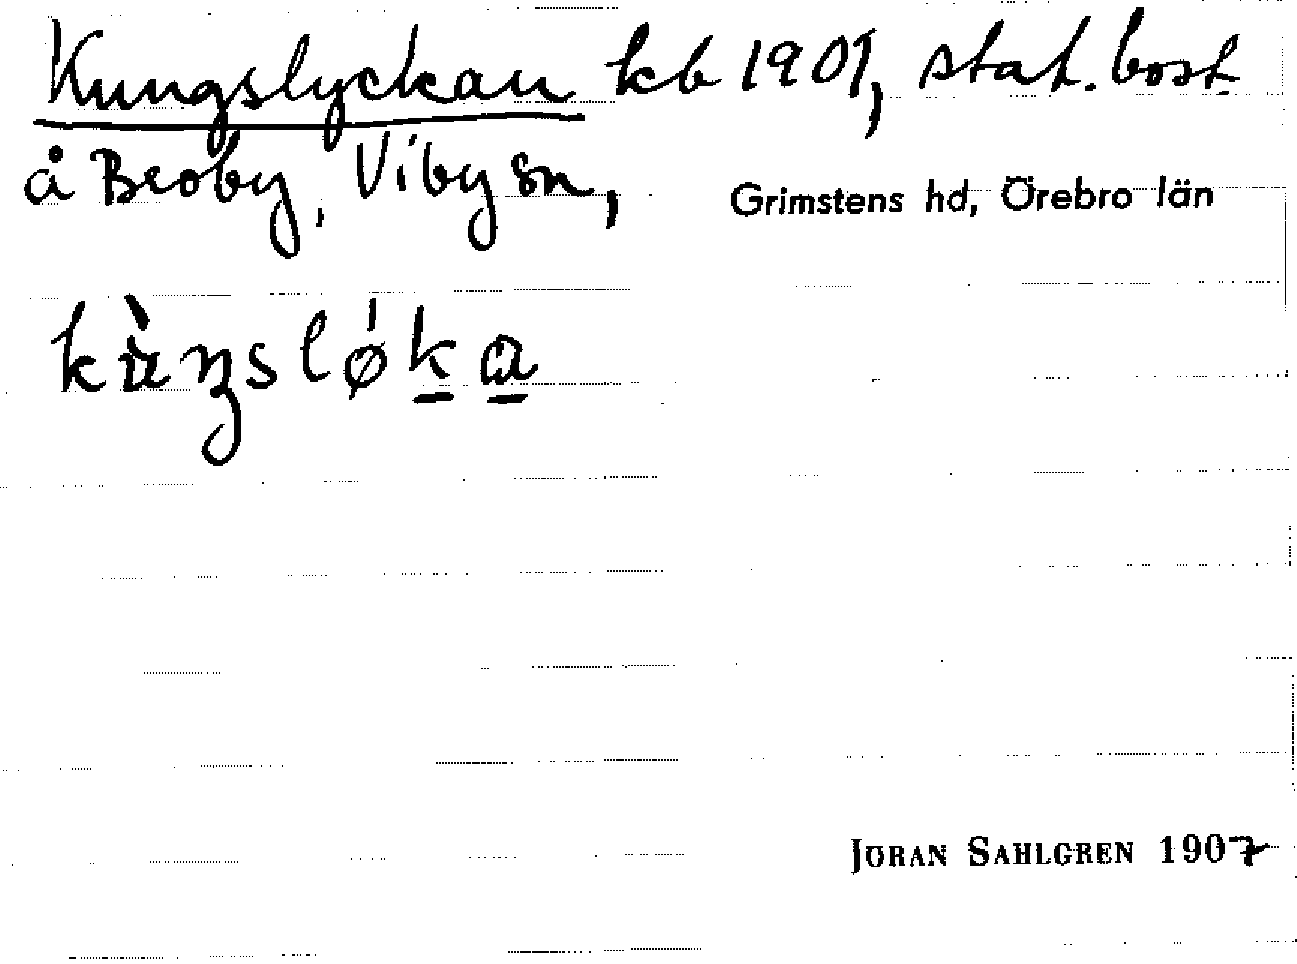 Kungslyckan kb 1901, stat. bost
å Broby, Viby sn, Grimstens hd, Örebro län
kùŋslǿka
JÖRAN SAHLGREN 1907